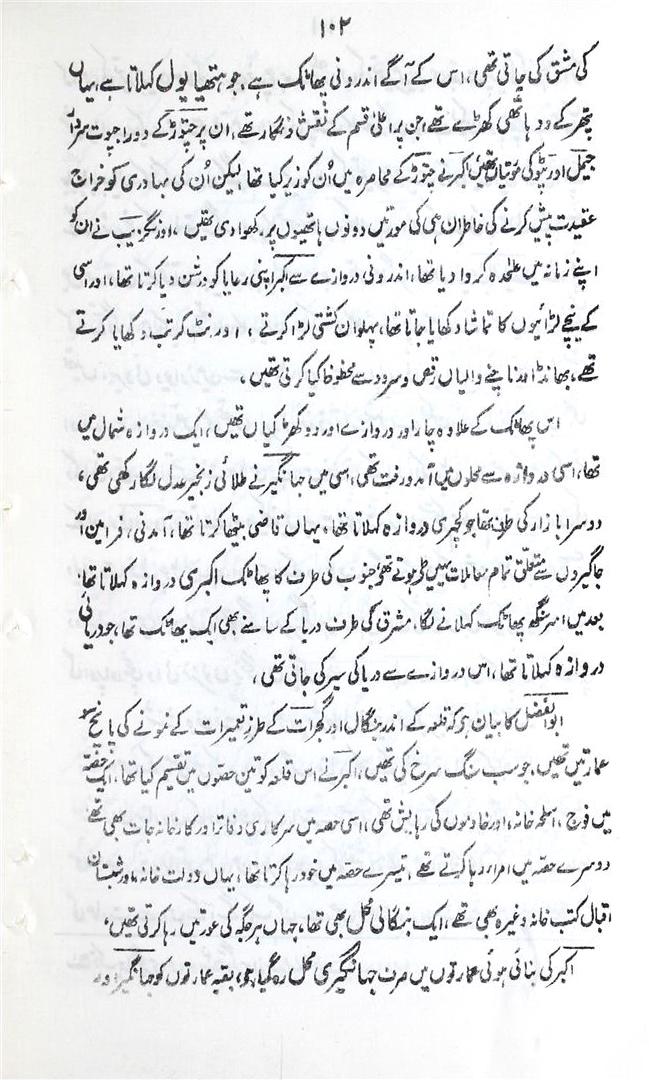 ۱۰۲
کی مشق کی جاتی تھی، اس کے آگے اندرونی پھاٹک ہے، جو ہتھیا پول کہلاتا ہے، یہاں
پتھر کے دو ہاتھی کھڑے تھے، جن پر اعلیٰ قسم کے نقش و نگار تھے، ان پر چتوڑ کے دو راجپوت سردار
جیمل اور پٹو کی مورتیاں تھیں، اکبر نے چتوڑ کے محاصرہ میں اُن کو زیر کیا تھا لیکن اُن کی بہادری کو خراج
عقیدت پیش کرنے کی خاطر ان ہی کی مورتیں دونوں ہاتھیوں پر رکھوا دی تھیں، اورنگزیب نے ان کو
اپنے زمانہ میں علٰحدہ کروا دیا تھا، اندرونی دروازے سے اکبر اپنی رعایا کو درشن دیا کرتا تھا، اور اسی
کے نیچے لڑائیوں کا تماشا دکھایا جاتا تھا، پہلوان کشتی لڑا کرتے، اور نٹ کرتب دکھایا کرتے
تھے، بھانڈ اور ناچنے والیاں رقص و سرود سے محظوظ کیا کرتی تھیں،
اس پھاٹک کے علاوہ چار اور دروازے اور دو کھڑکیاں تھیں، ایک دروازہ شمال میں
تھا، اسی دروازہ سے محلوں میں آمد و رفت تھی، اسی میں جہانگیر نے طلائی زنجیر عدل لگا رکھی تھی،
دوسرا بازار کی طرف تھا جو کچہری دروازہ کہلاتا تھا، یہاں قاضی بیٹھا کرتا تھا، آمدنی، فرامین اور
جاگیروں سے متعلق تمام معاملات یہیں طے ہوتے تھے، جنوب کی طرف کا پھاٹک اکبری دروازہ کہلاتا تھا،
بعد میں امر سنگھ پھاٹک کہلانے لگا، مشرق کی طرف دریا کے سامنے بھی ایک پھاٹک تھا، جو دریائی
دروازہ کہلاتا تھا، اس دروازے سے دریا کی سیر کی جاتی تھی،
ابوالفضل کا بیان ہے کہ قلعہ کے اندر بنگال اور گجرات کے طرز تعمیرات کے نمونے کی پانچ سو
عمارتیں تھیں، جو سب سنگ سرخ کی تھیں، اکبر نے اس قلعہ کو تین حصوں میں تقسیم کیا تھا، ایک حصّہ
میں فوج، اسلحہ خانہ، اور خادموں کی رہایش تھی، اسی حصہ میں سرکاری دفاتر اور کارخانہ جات بھی تھے
دوسرے حصّہ میں امراء رہا کرتے تھے، تیسرے حصّہ میں خود رہا کرتا تھا، یہاں دولت خانہ، اور شبستان
اقبال کتب خانہ وغیرہ بھی تھے، ایک بنگالی محل بھی تھا، جہاں ہر جگہ کی عورتیں رہا کرتی تھیں،
اکبر کی بنائی ہوئی عمارتوں میں صرف جہانگیری محل رہ گیا ہے، بقیہ عمارتوں کو جہانگیر اور